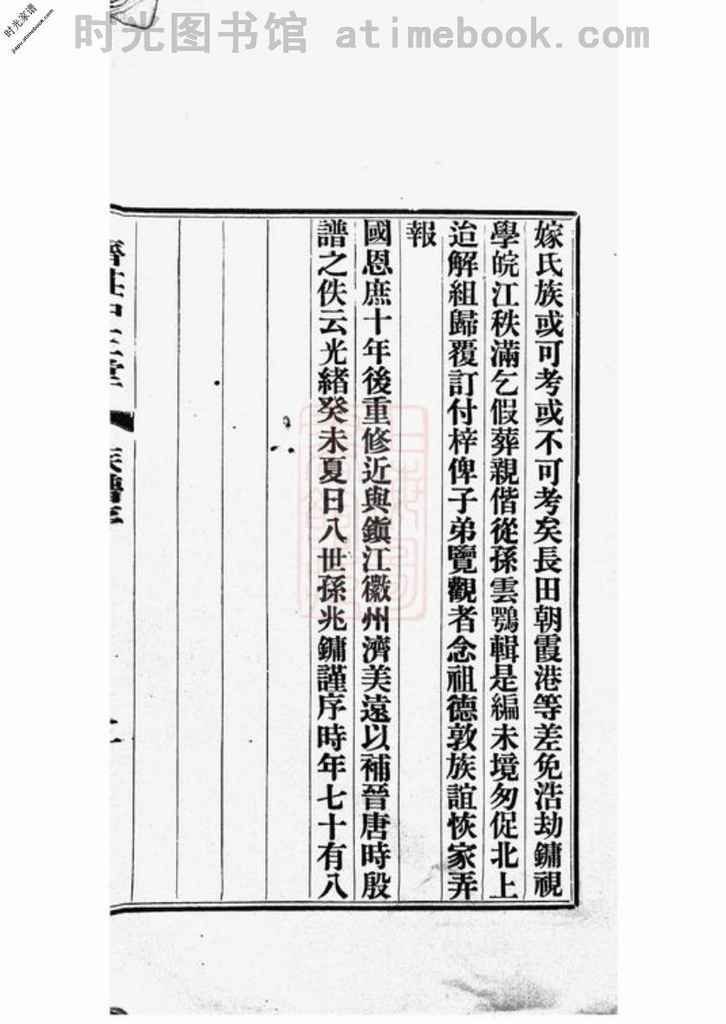 时光图书馆 atimebook.com
时光家谱
jiapu.atimebook.com
嫁氏族或可考或不可考矣長田朝霞港等差免浩劫鏞視
學皖江秩滿乞假葬親偕從孫雲鶚輯是編未境匆促北上
迨解組歸覆訂付梓俾子弟覽觀者念祖德敦族誼恢家弄
報
國恩庶十年後重修近與鎭江徽州濟美遠以補晉唐時殷
譜之佚云光緒癸未夏日八世孫兆鏞謹序時年七十有八